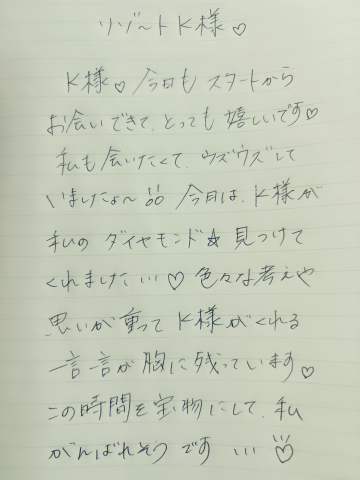 リゾ〜トK様♡
K様♡今日もスタートから
お会いできて、とっても嬉しいです♡
私も会いたくて、ウズウズして
いましたょ〜 今日は、K様が
私のダイヤモンド☆見つけて
くれました…♡色々な考えや
思いが重って K様がくれる
一言一言が胸に残っています♡
この時間を宝物にして、私
がんばれそうです…♡